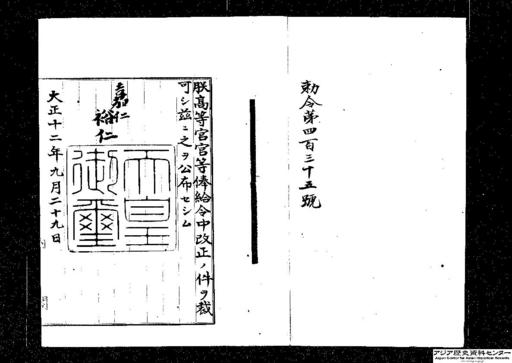 勅令第四百三十五號
朕高等官官等俸給令中改正ノ件ヲ裁
可シ茲ニ之ヲ公布セシム
嘉仁
裕仁
天皇
御璽
大正十二年九月二十九日
アジア歴史資料センター
Japan Center for Asian Historical Records